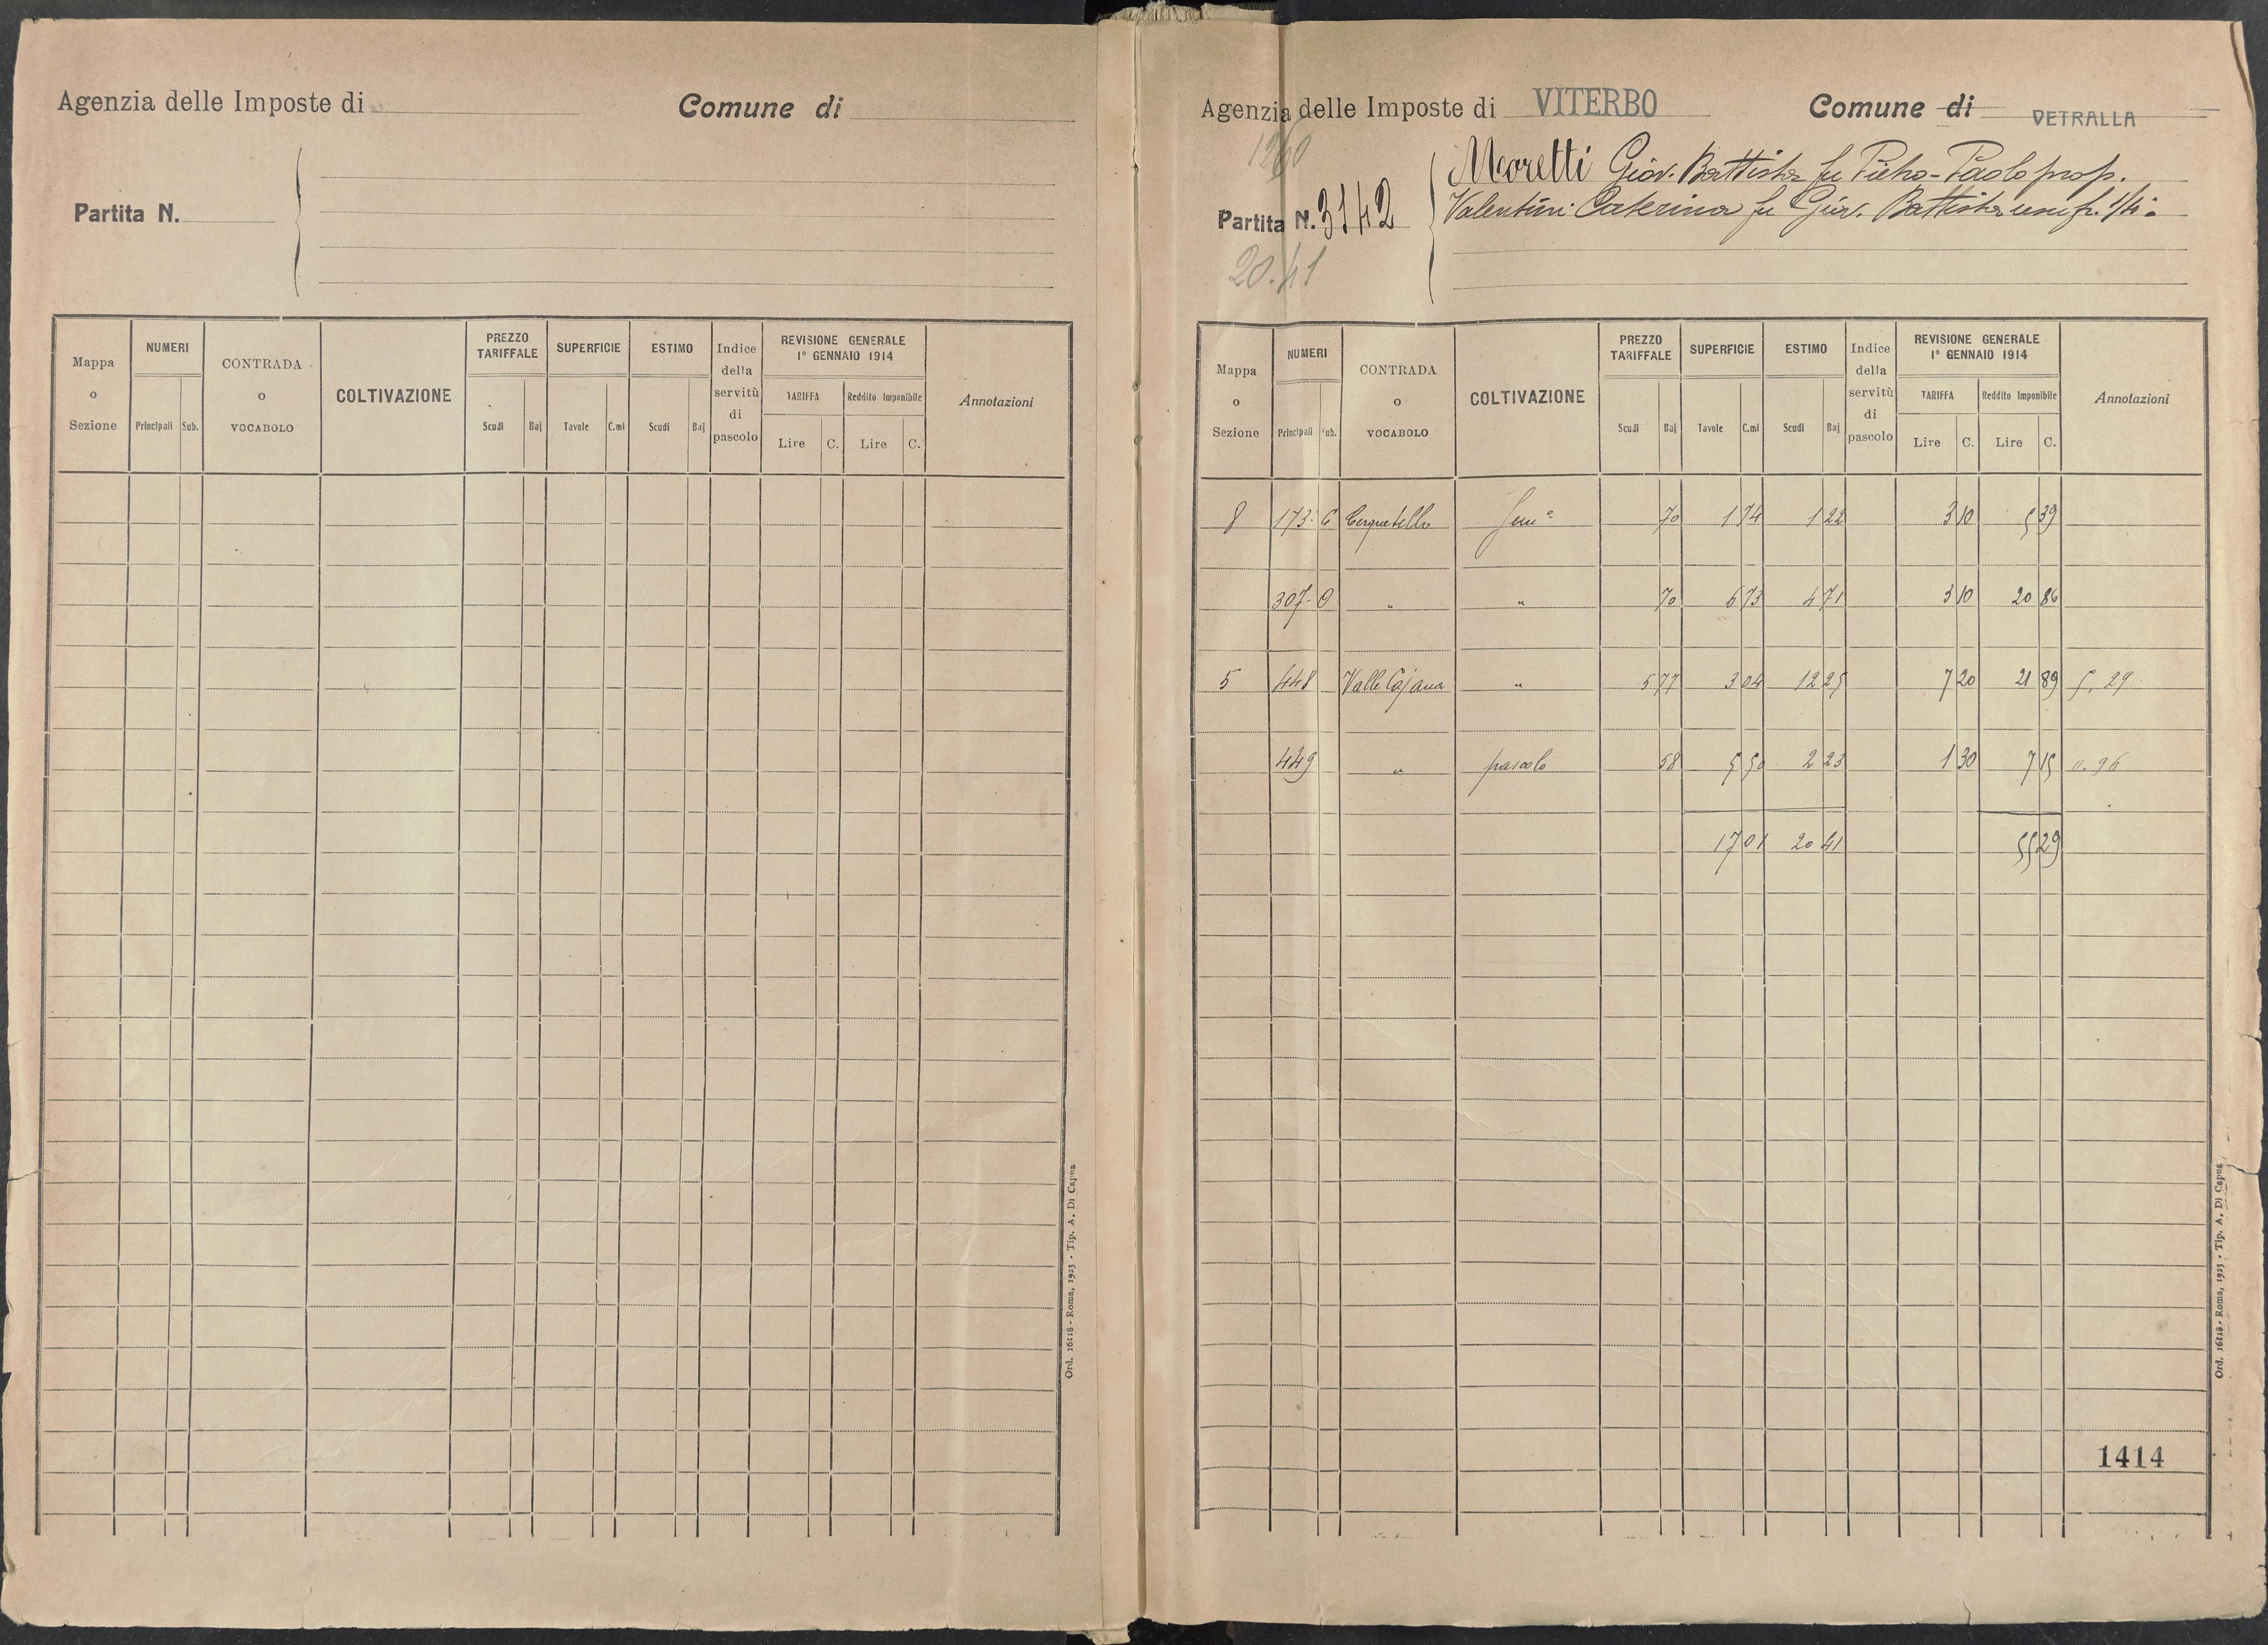 Agenzia delle Imposte di
Comune di
Partita N.
Mappa o Sezione
NUMERI
Principali Sub.
CONTRADA o VOCABOLO
COLTIVAZIONE
PREZZO TARIFFALE
Scudi Baj
SUPERFICIE
Tavole C.mi
ESTIMO
Scudi Baj
Indice della servitù di pascolo
REVISIONE GENERALE
1° GENNAIO 1914
TARIFFA
Lire C.
Reddito Imponibile
Lire C.
Annotazioni
Ord. 16118 - Roma, 1923 - Tip. A. Di Capua
Agenzia delle Imposte di VITERBO
Comune di VETRALLA
1260
Moretti Giov. Battista fu Pietro-Paolo prop.
Partita N. 3142
Valentini Caterina fu Giov. Battista usufr. 1/4
20.41
Mappa o Sezione
NUMERI
Principali Sub.
CONTRADA o VOCABOLO
COLTIVAZIONE
PREZZO TARIFFALE
Scudi Baj
SUPERFICIE
Tavole C.mi
ESTIMO
Scudi Baj
Indice della servitù di pascolo
REVISIONE GENERALE
1° GENNAIO 1914
TARIFFA
Lire C.
Reddito Imponibile
Lire C.
Annotazioni
8 173 Cerquetello Sem° 70 1 74 1 22 3 10 5 39
307 " " 70 6 73 4 71 3 10 20 86
5 448 Valle Cajana " 5 77 3 04 12 25 7 20 21 89 5.29
449 " pascolo 58 5 50 2 23 1 30 7 15 0.96
17 01 20 41 55 29
1414
Ord. 16118 - Roma, 1923 - Tip. A. Di Capua